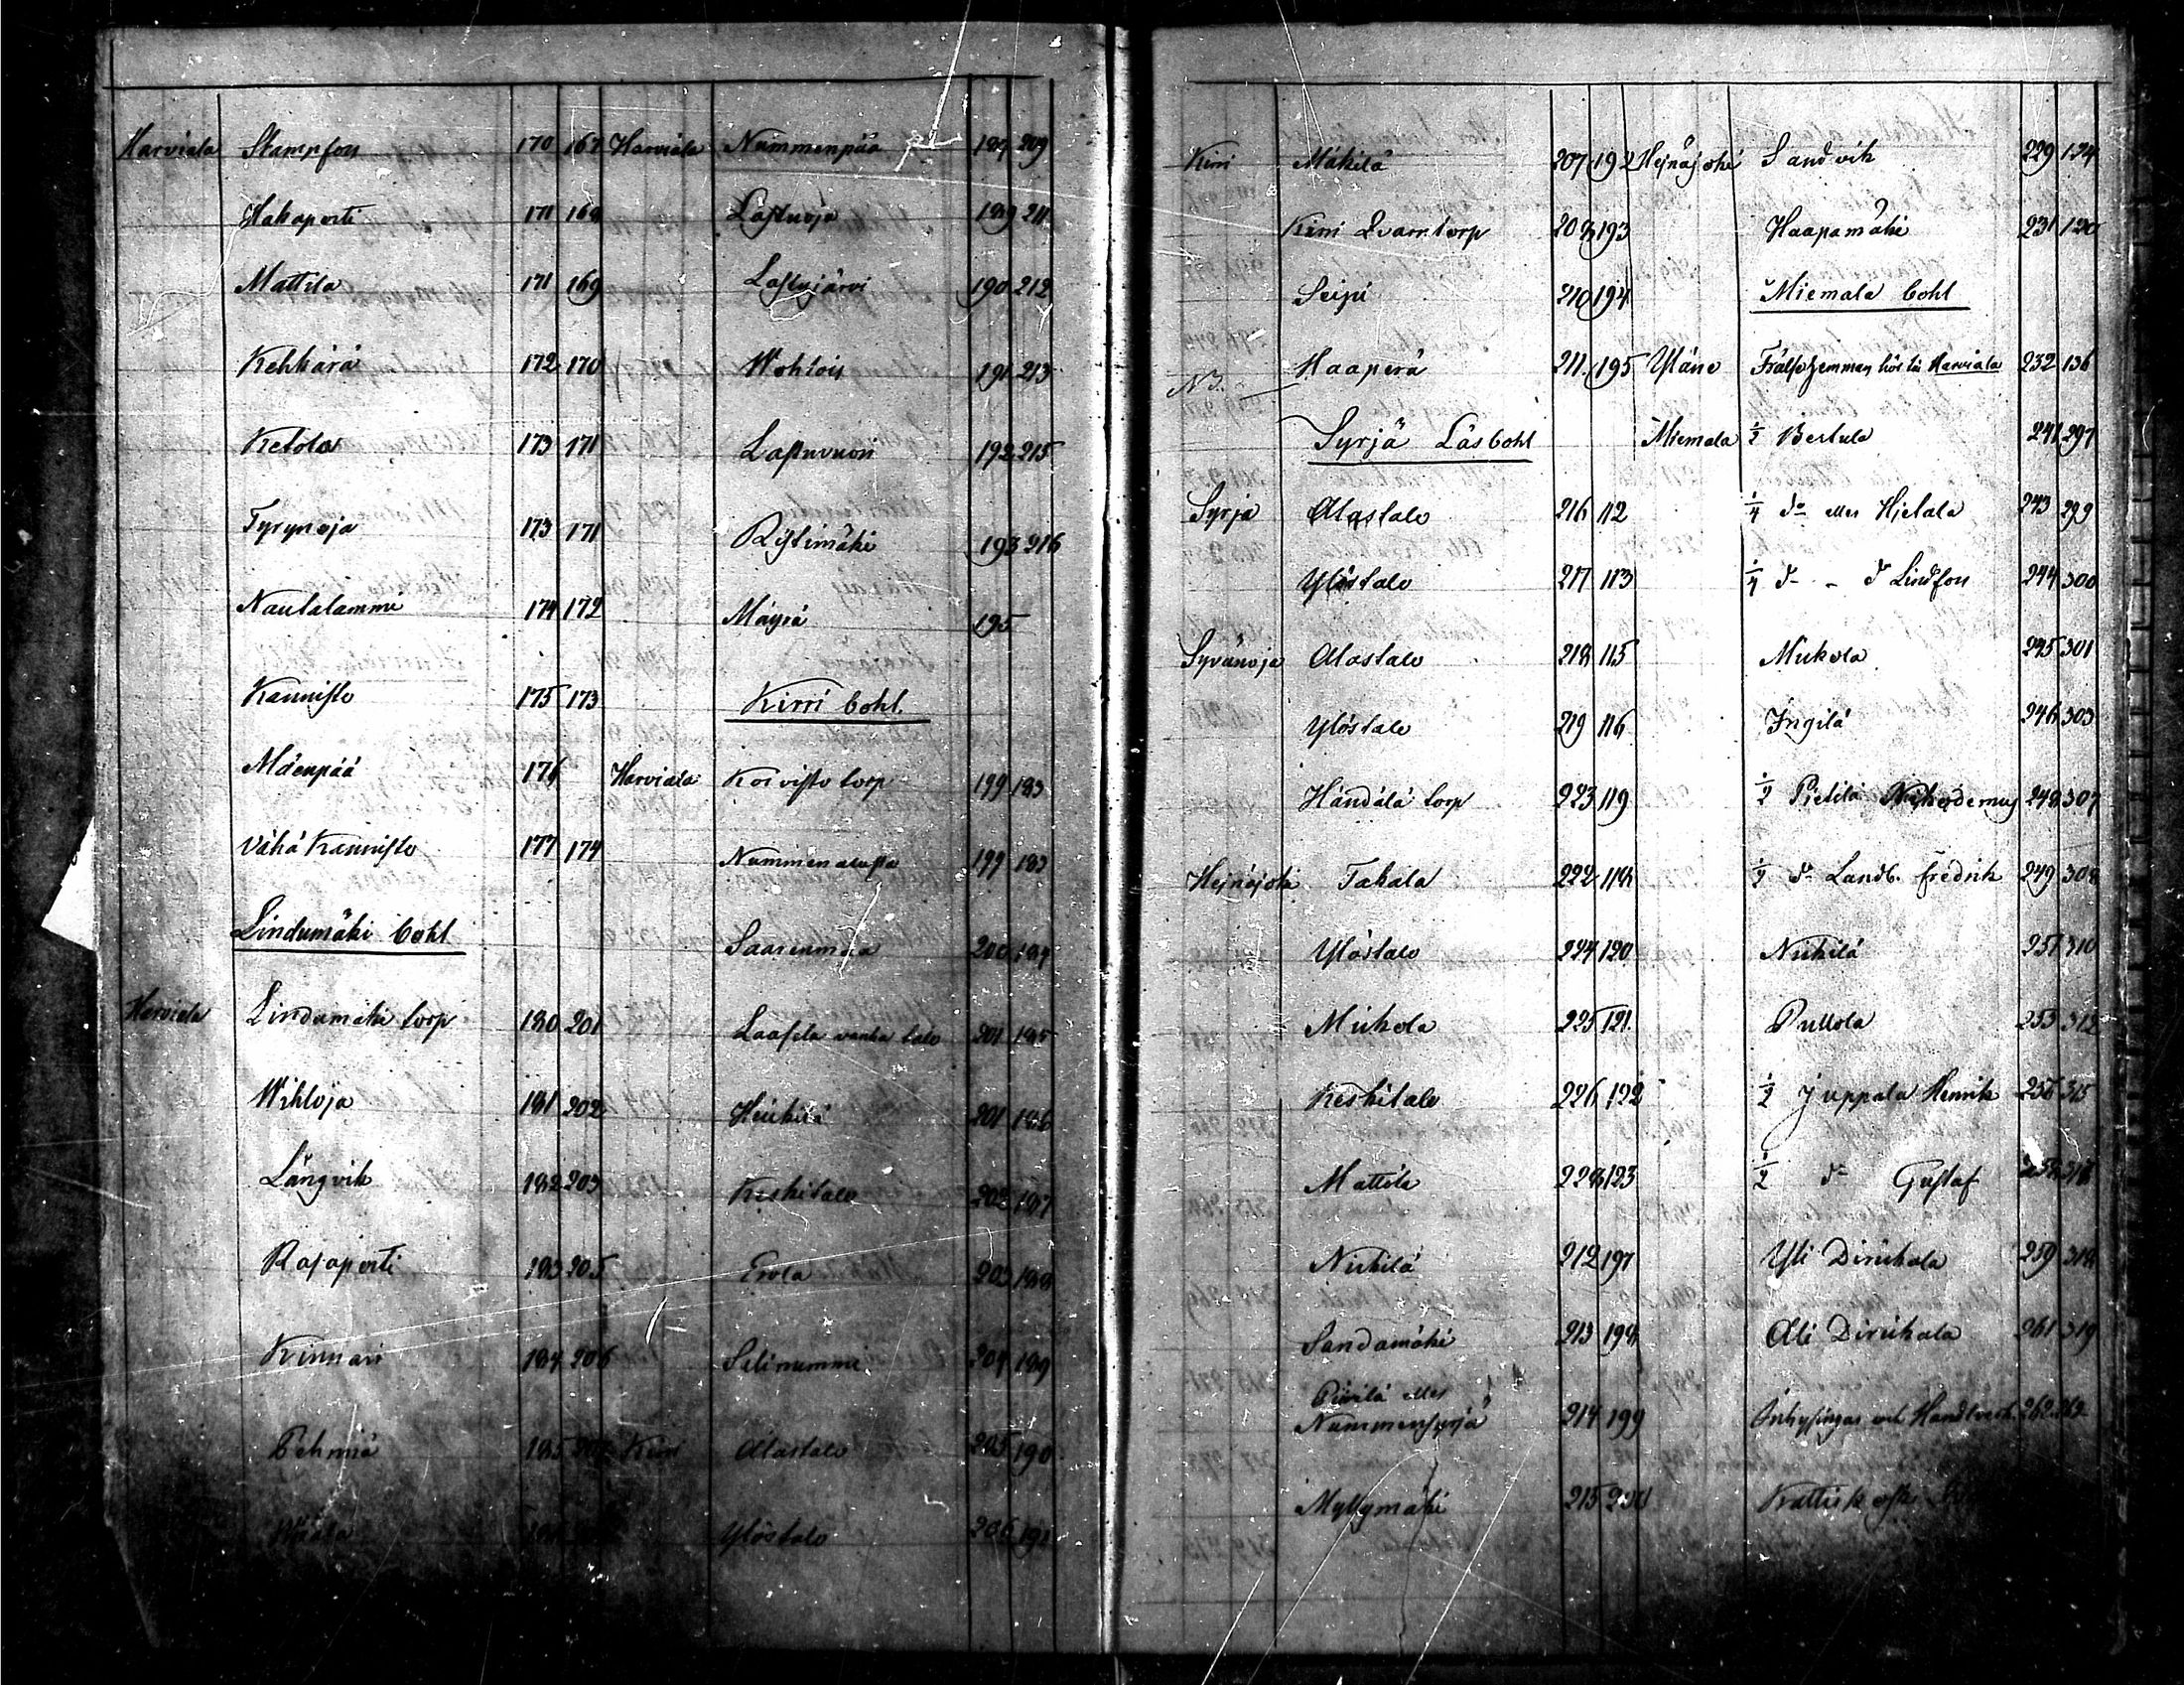 Harviala Stampfors 170 167
Hakaporti 171 168
Mattila 171 169
Kehkärä 172 170
Ketola 173 171
Tyrynoja 173 171
Nautalammi 174 172
Kannisto 175 173
Mäenpää 176
Vähä Kannisto 177 174
Lindumäki bohl
Harviala Lindumäki torp 180 201
Wihloja 181 202
Långvik 182 203
Rajaporti 183 205
Kinnari 184 206
Pehmiä 185
Harviala Nummenpää 187 209
Lastuoja 189 211
Lastujärvi 190 212
Wohlois 191 213
Lastuvuori 192 215
Rystimäki 193 216
Mäyrä 195
Kirri bohl.
Harviala Koivisto torp 199 183
Nummenalusta 199 183
Saarenmaa 200 184
Laasila vanha talo 201 185
Heikkilä 201 186
Keskitalo 202 187
Erola 203 188
Selinummi 204 189
Kirri Alastalo 205 190
Ylöstalo 206 191
Kirri Mäkilä 207 192
Kirri Qvarntorp 208 193
Seipi 210 194
N3. Haaperä 211 195
Syrjä Läsbohl
Syrjä Alastalo 216 112
Ylöstalo 217 113
Syvänoja Alastalo 218 115
Ylöstalo 219 116
Händälä torp 223 119
Hejnäjoki Takala 222 118
Ylöstalo 224 120
Mickola 225 121
Keskitalo 226 122
Mattila 228 123
Nickilä 212 197
Sandamäki 213 198
Piirilä eller
Nummensyrjä 214 199
Myllymäki 215 200
Hejnäjoki Sandvik 229 124
Haapamäki 231 130
Miemala bohl
Yläne Frälsehemman hör til Harviala 232 136
Miemala ½ Bertula 241 297
¼ do eller Hietala 243 299
¼ do - do Lindfors 244 300
Mickola 245 301
Ingilä 246 303
½ Pietilä Nikodemus 248 307
½ do Landb. Fredrik 249 308
Nickilä 251 310
Pullola 253 312
½ Juppala Henrik 255 315
½ do Gustaf
Yli Dirickala 259 318
Ali Dirickala 261 319
Inhysingar och Handtverk. 262 262